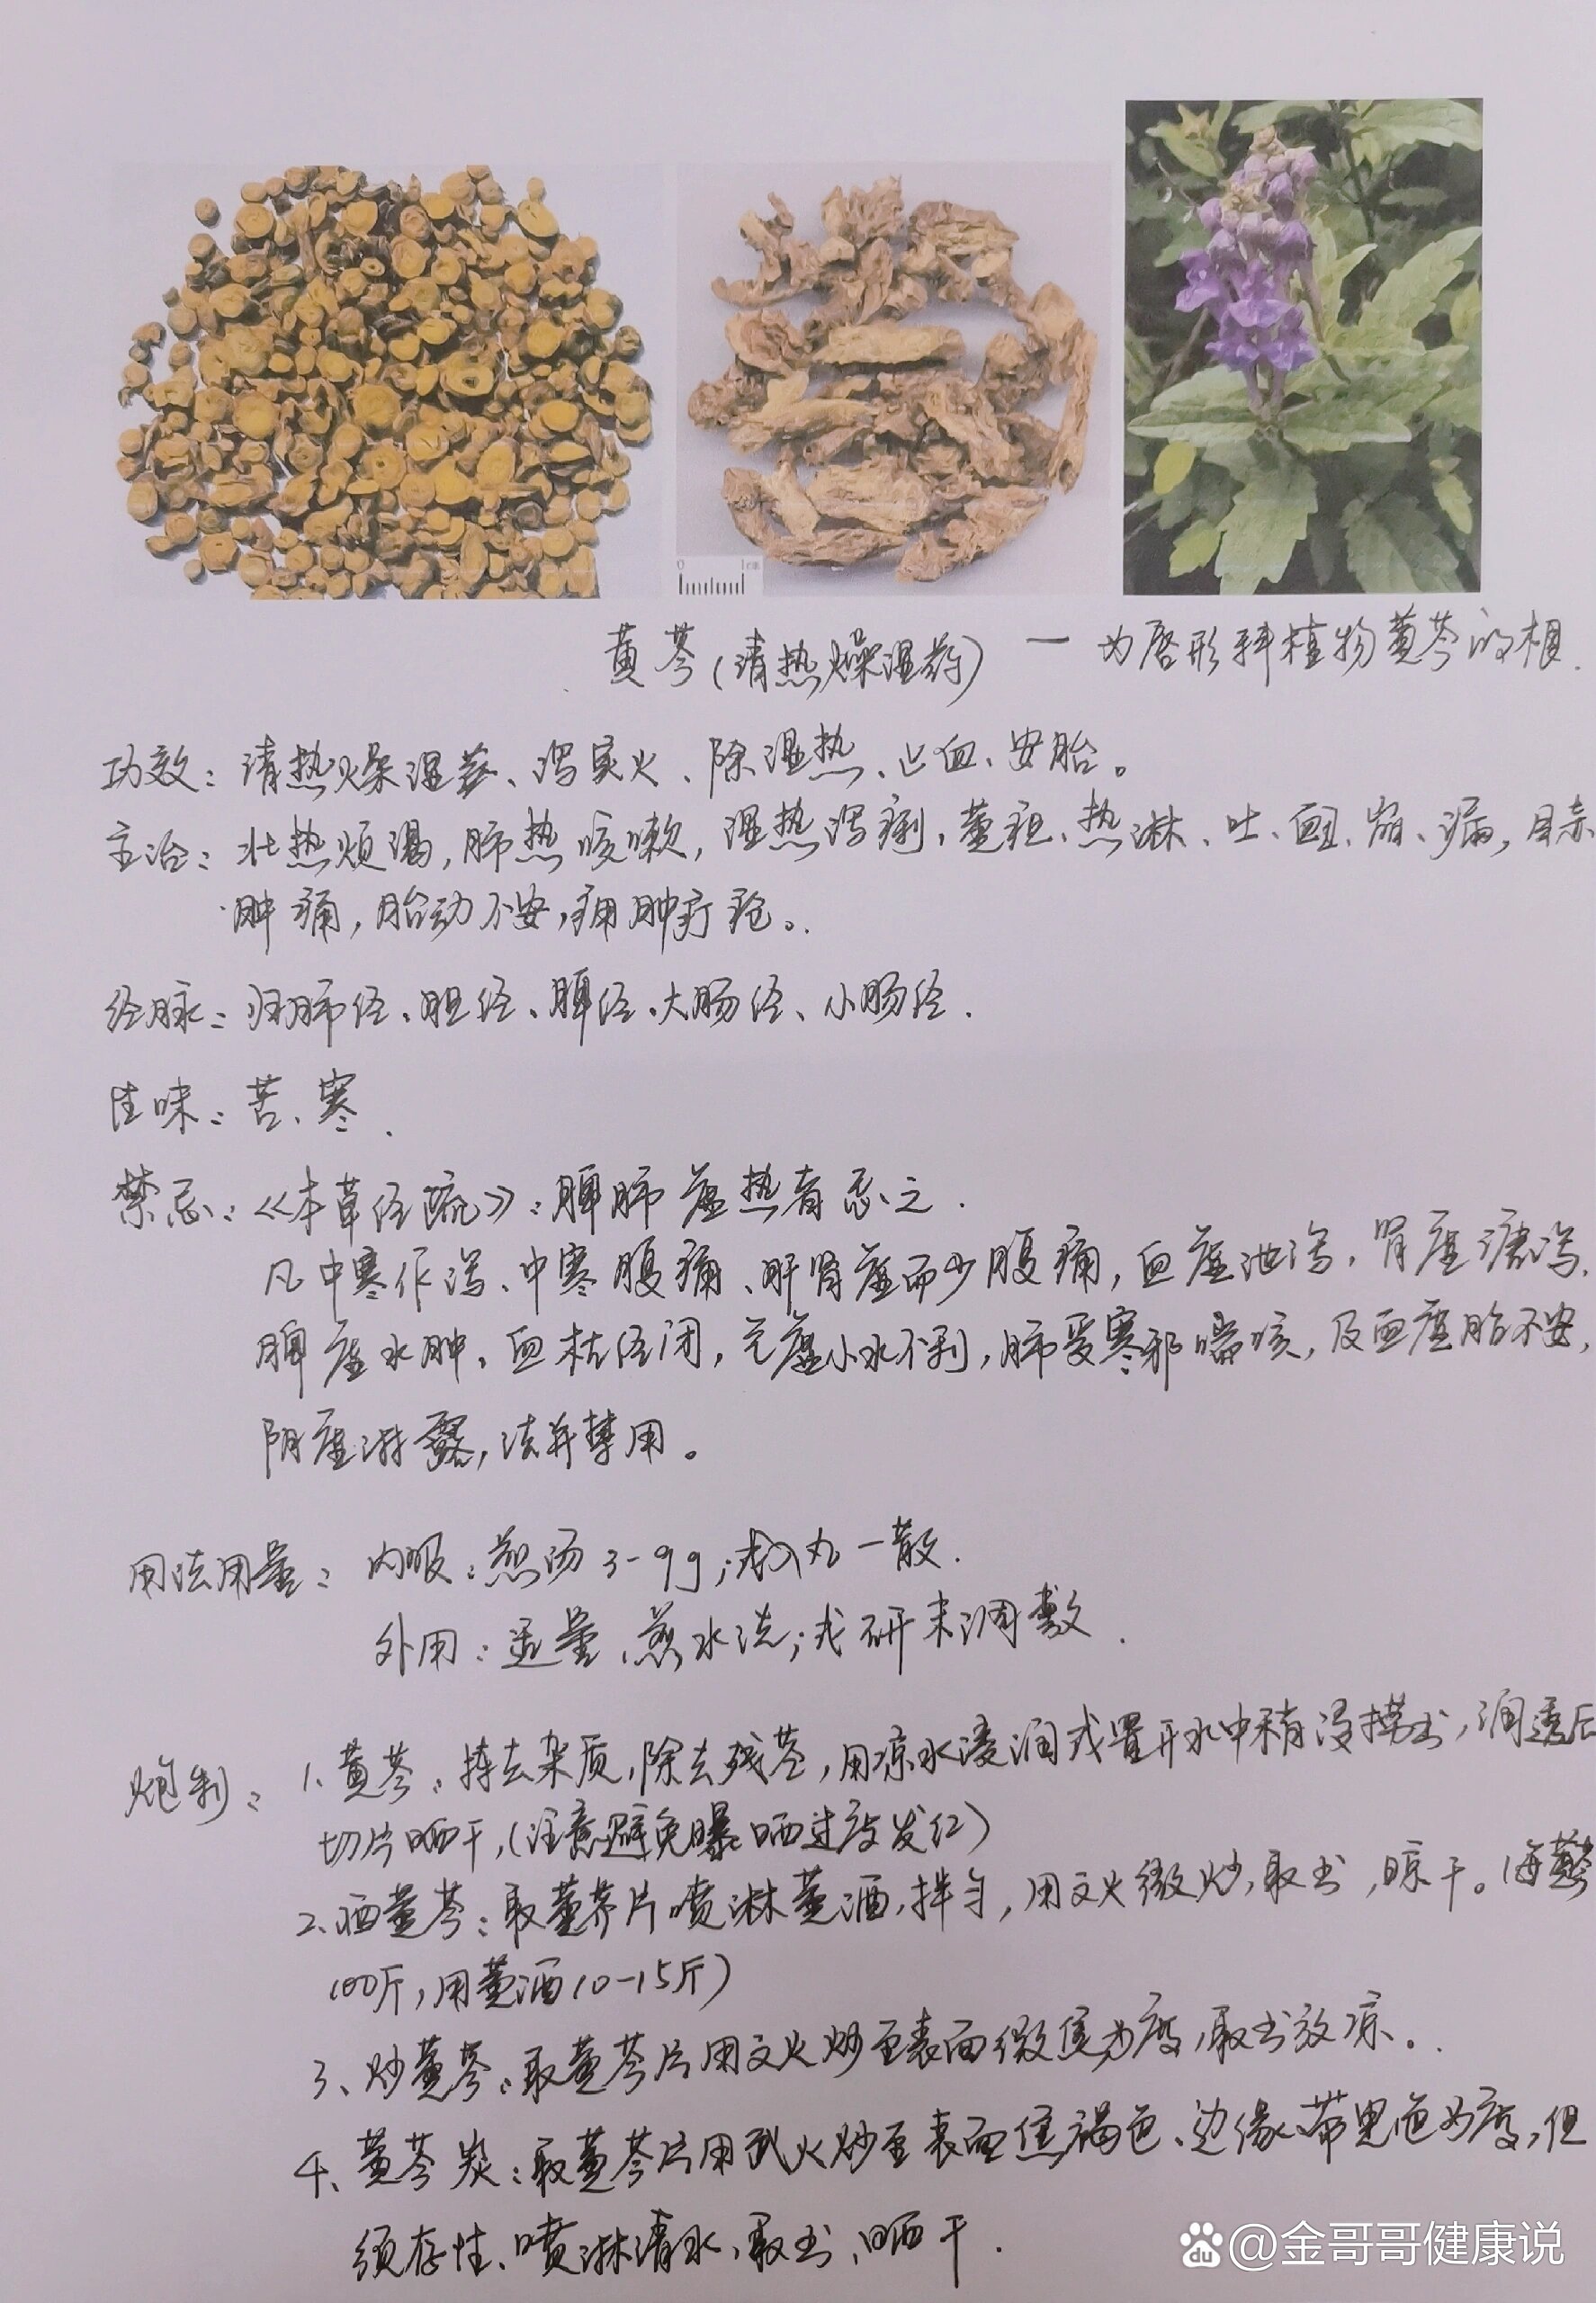 0 1cm
黄芩(清热燥湿药) — 为唇形科植物黄芩的根.
功效: 清热燥湿、泻实火、除湿热、止血、安胎。
主治: 壮热烦渴, 肺热咳嗽, 湿热泻痢, 黄疸、热淋、吐、衄、崩、漏, 目赤
肿痛, 胎动不安, 痈肿疔疮。
经脉: 归肺经、胆经、脾经、大肠经、小肠经.
性味: 苦、寒.
禁忌: 《本草经疏》: 脾肺虚热者忌之.
凡中寒作泻、中寒腹痛、肝肾虚而少腹痛, 血虚泄泻, 肾虚溏泻,
脾虚水肿, 血枯经闭, 气虚小水不利, 肺受寒邪喘咳, 及血虚胎不安,
阴虚淋露, 法并禁用。
用法用量: 内服: 煎汤 3-9g; 或入丸一散.
外用: 适量、煎水洗; 或研末调敷.
炮制: 1、黄芩: 拣去杂质, 除去残茎, 用凉水浸润或置开水中稍浸捞出, 润透后
切片晒干, (注意避免曝晒过度发红)
2、酒黄芩: 取黄芩片喷淋黄酒, 拌匀, 用文火微炒, 取出, 晾干。(每黄芩
100斤, 用黄酒10-15斤)
3、炒黄芩: 取黄芩片用文火炒至表面微焦为度, 取出放凉。
4、黄芩炭: 取黄芩片用武火炒至表面焦褐色、边缘带黑色为度, 但
须存性、喷淋清水、取出、晒干.
du @金哥哥健康说